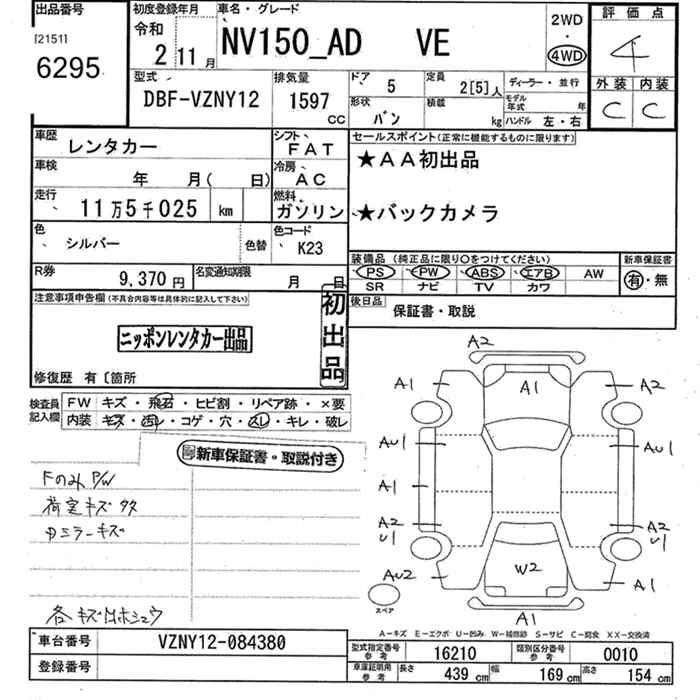 出品番号
[2151]
6295
初度登録年月
令和
2 11月
車名・グレード
NV150_AD VE
2WD
・
4WD
評価点
4
外装 内装
C C
型式
DBF-VZNY12
排気量
1597
CC
ドア 5
形状 バン
定員 2[5]人
積載 kg
ディーラー・並行
モデル年式 年
ハンドル 左・右
車歴
レンタカー
車検
年 月( 日)
走行
11万5千025 km
色
シルバー
色替
シフト
FAT
冷房
AC
燃料
ガソリン
色コード
K23
セールスポイント(正常に機能するものに限ります)
★AA初出品
★バックカメラ
装備品 (純正品に限り○をつけてください)
PS PW ABS エアB AW
SR ナビ TV カワ
新車保証書
有・無
R券
9,370円
名変通知期限
月 日
後日品
保証書・取説
注意事項申告欄(不具合内容等は具体的に記入して下さい)
ニッポンレンタカー出品
初出品
修復歴 有〔箇所
検査員記入欄
FW キズ・飛石・ヒビ割・リペア跡・×要
内装 キズ・汚レ・コゲ・穴・スレ・キレ・破レ
新車保証書・取説付き
FのみP/W
荷室キズ
ミラーキズ
各キズ
A2
A1 A1 A2
AU1 AU1
A1
A2 A2
U1 U1
AU2 W2 A1
A1
スペア
A-キズ E-エクボ U-凹み W-補修跡 S-サビ C-腐食 XX-交換済
車台番号
VZNY12-084380
登録番号
型式指定番号
参考
16210
類別区分番号
参考
0010
車庫証明用
参考
長さ 439 cm
幅 169 cm
高さ 154 cm